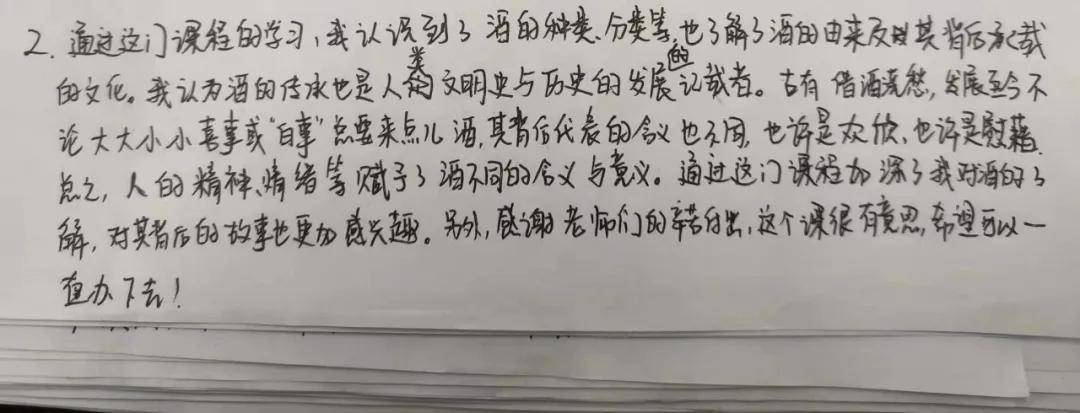 2. 通过这门课程的学习,我认识到了酒的种类、分类等,也了解了酒的由来及其背后承载
的文化。我认为酒的传承也是人类文明史与历史的发展的记载者。古有借酒浇愁,发展至今不
论大大小小喜事或“白事”总要来点儿酒,其背后代表的含义也不同,也许是欢欣、也许是慰藉.
总之,人的精神、情绪等赋予了酒不同的含义与意义。通过这门课程加深了我对酒的了
解,对其背后的故事也更加感兴趣。另外,感谢老师们的辛苦付出,这个课很有意思,希望可以一
直办下去!